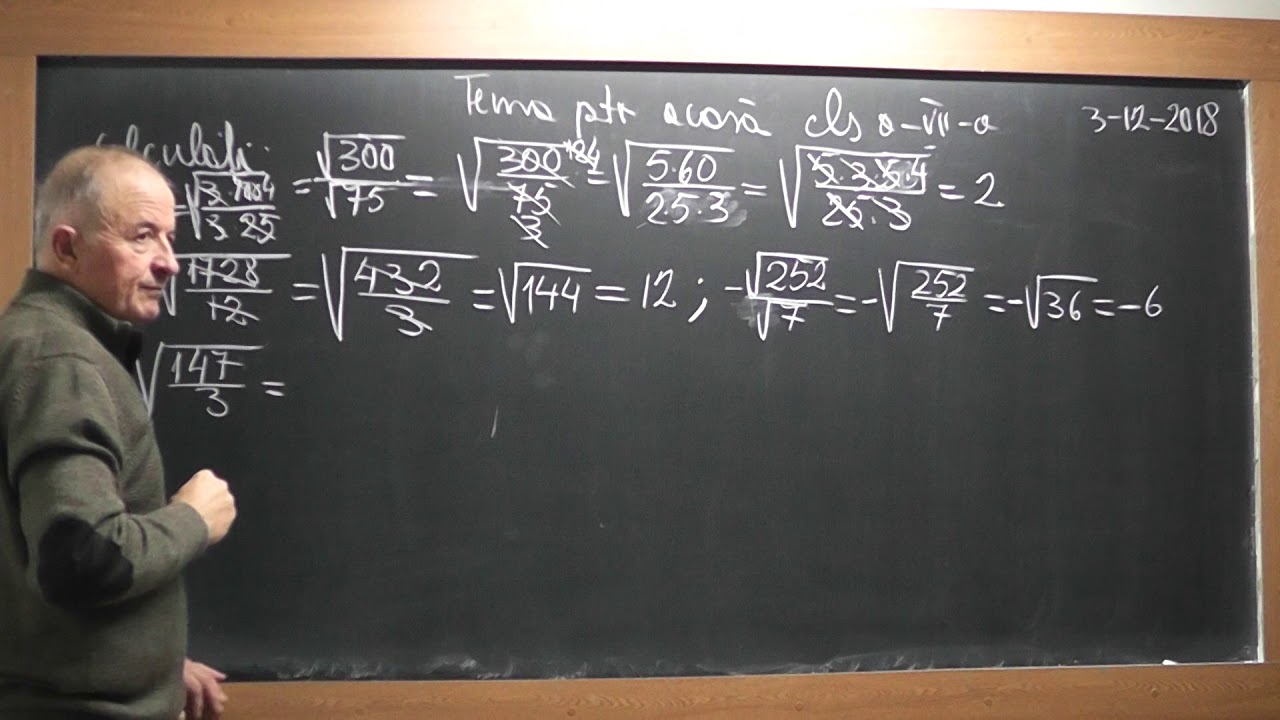 Tema ptr acasă cls a-VII-a 3-12-2018
√(3·100·4/3·25) = √300/√75 = √(300/75) = √(5·60/2·5·3) = √(5·3·5·4/25·3) = 2
√(1728/12) = √(432/3) = √144 = 12 ; -√252/√7 = -√(252/7) = -√36 = -6
√(147/3) =